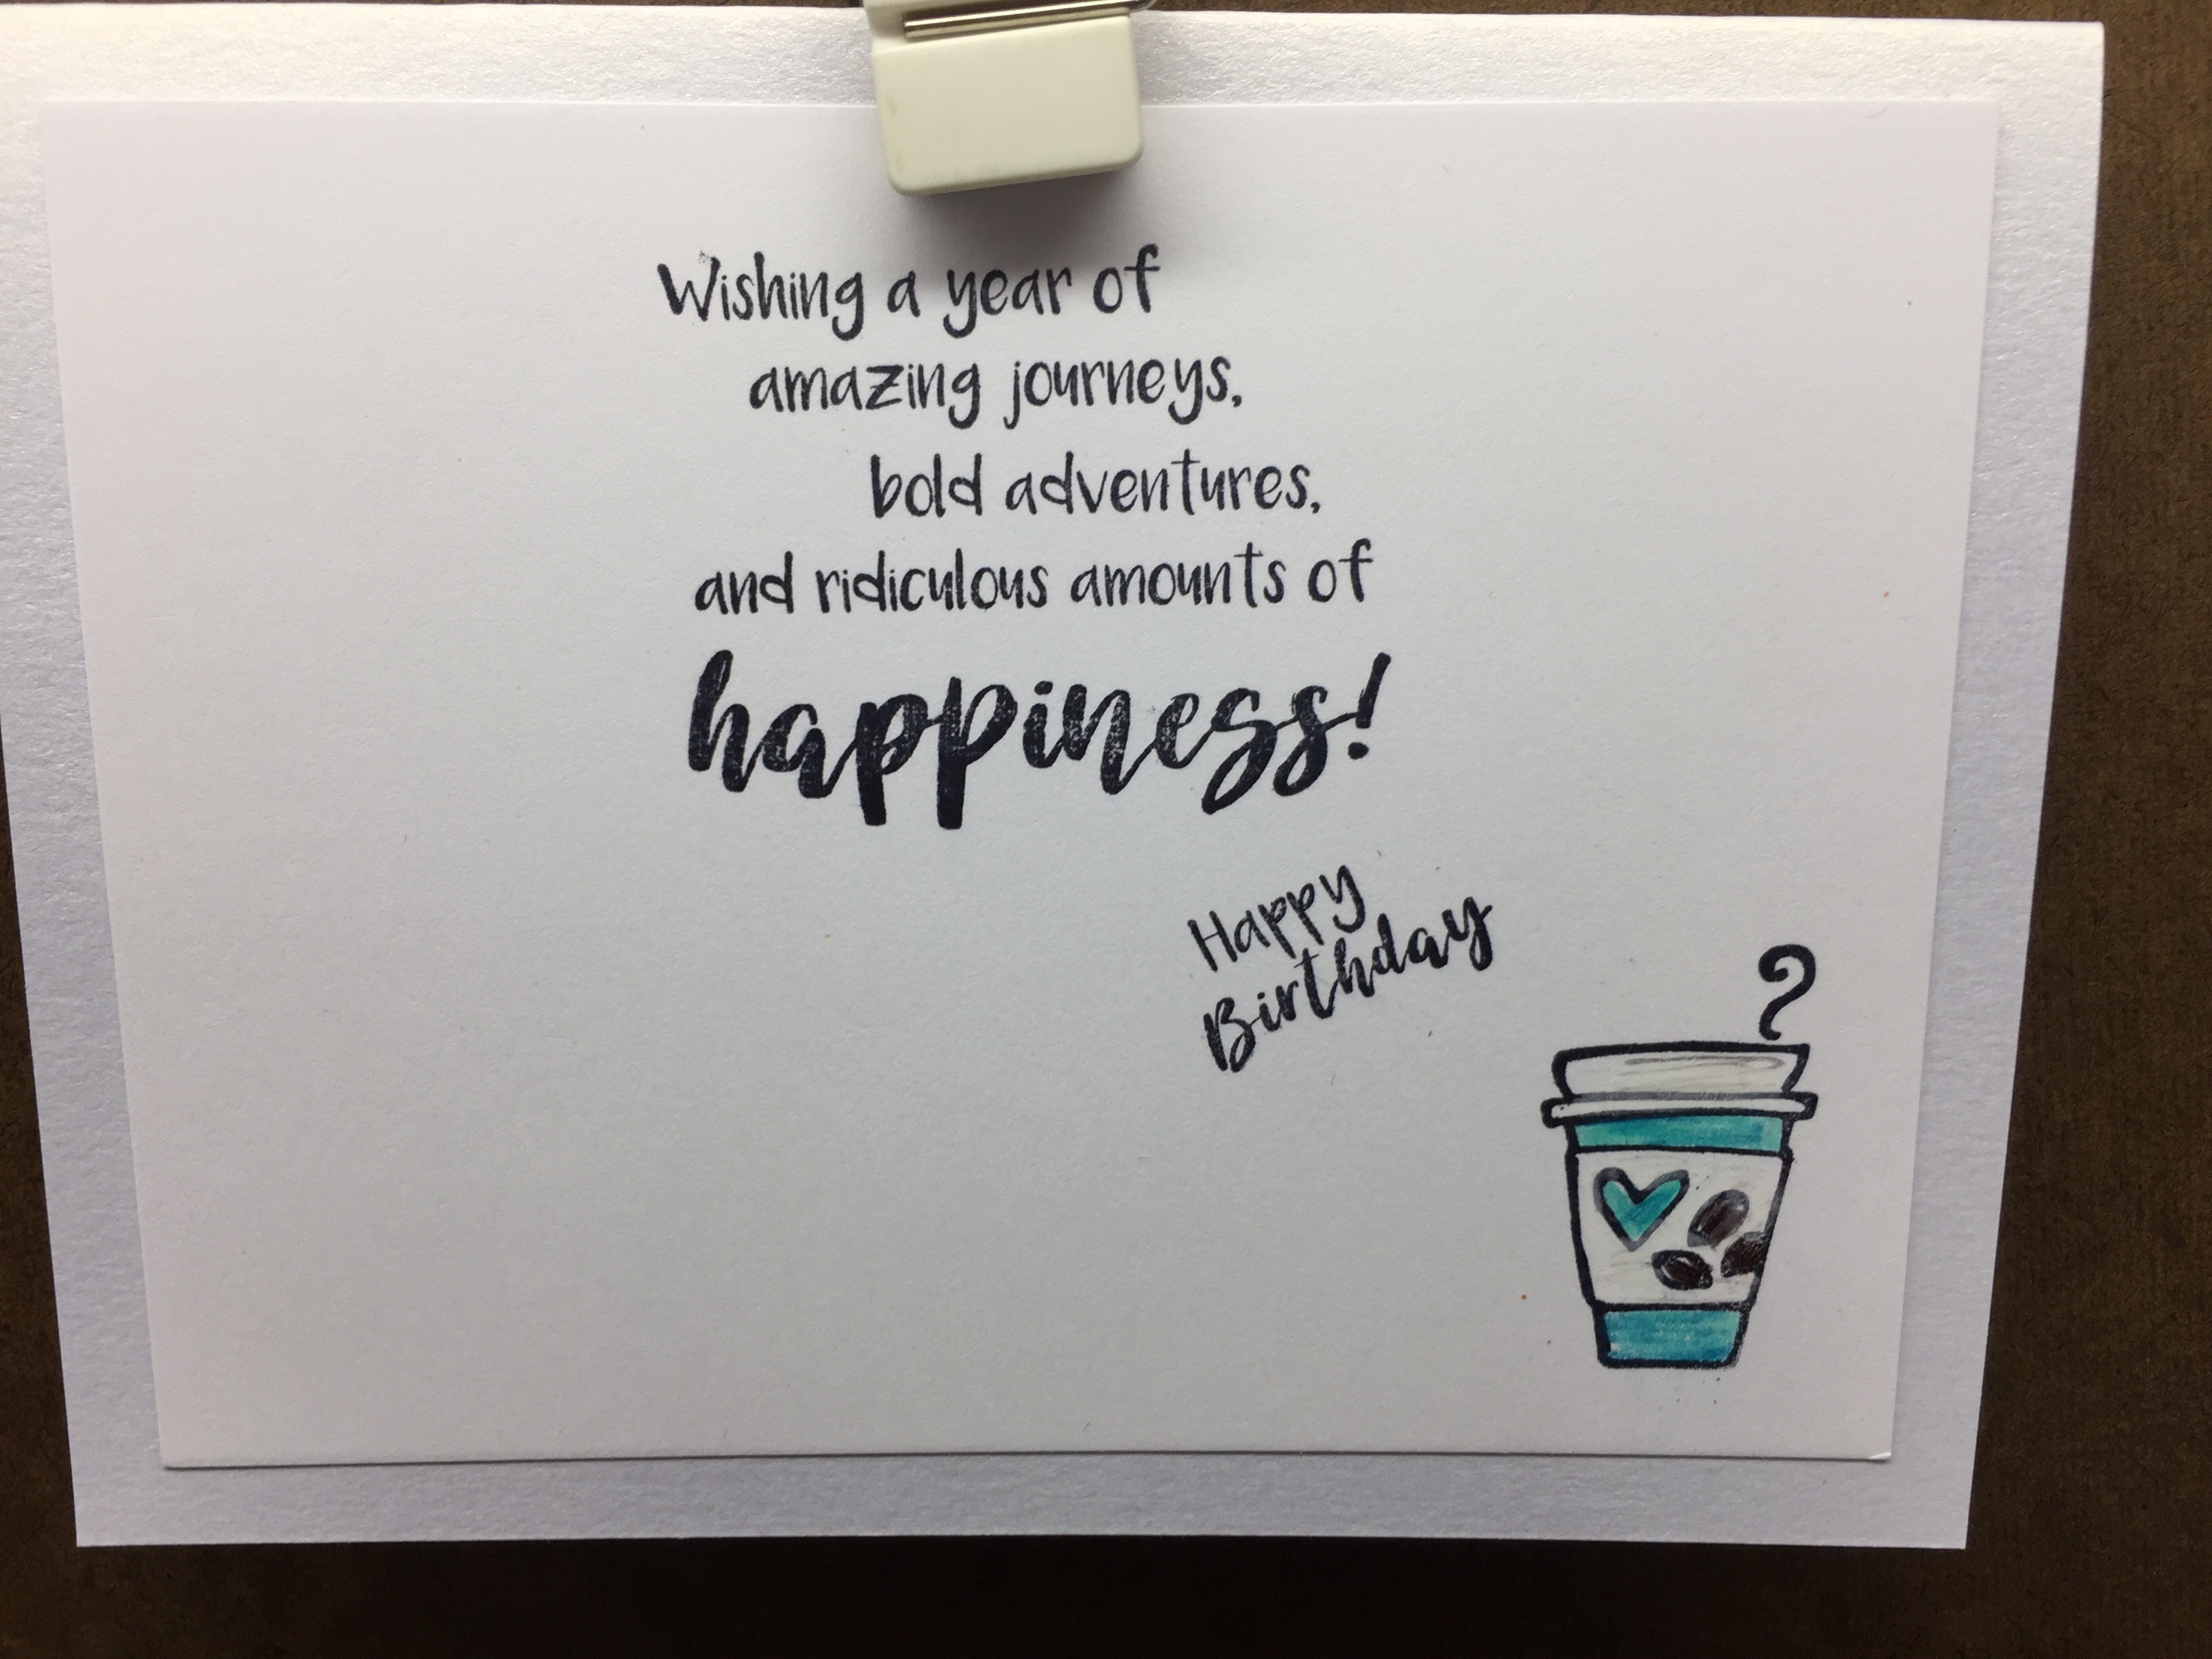 Wishing a year of
amazing journeys,
bold adventures,
and ridiculous amounts of
happiness!
Happy
Birthday